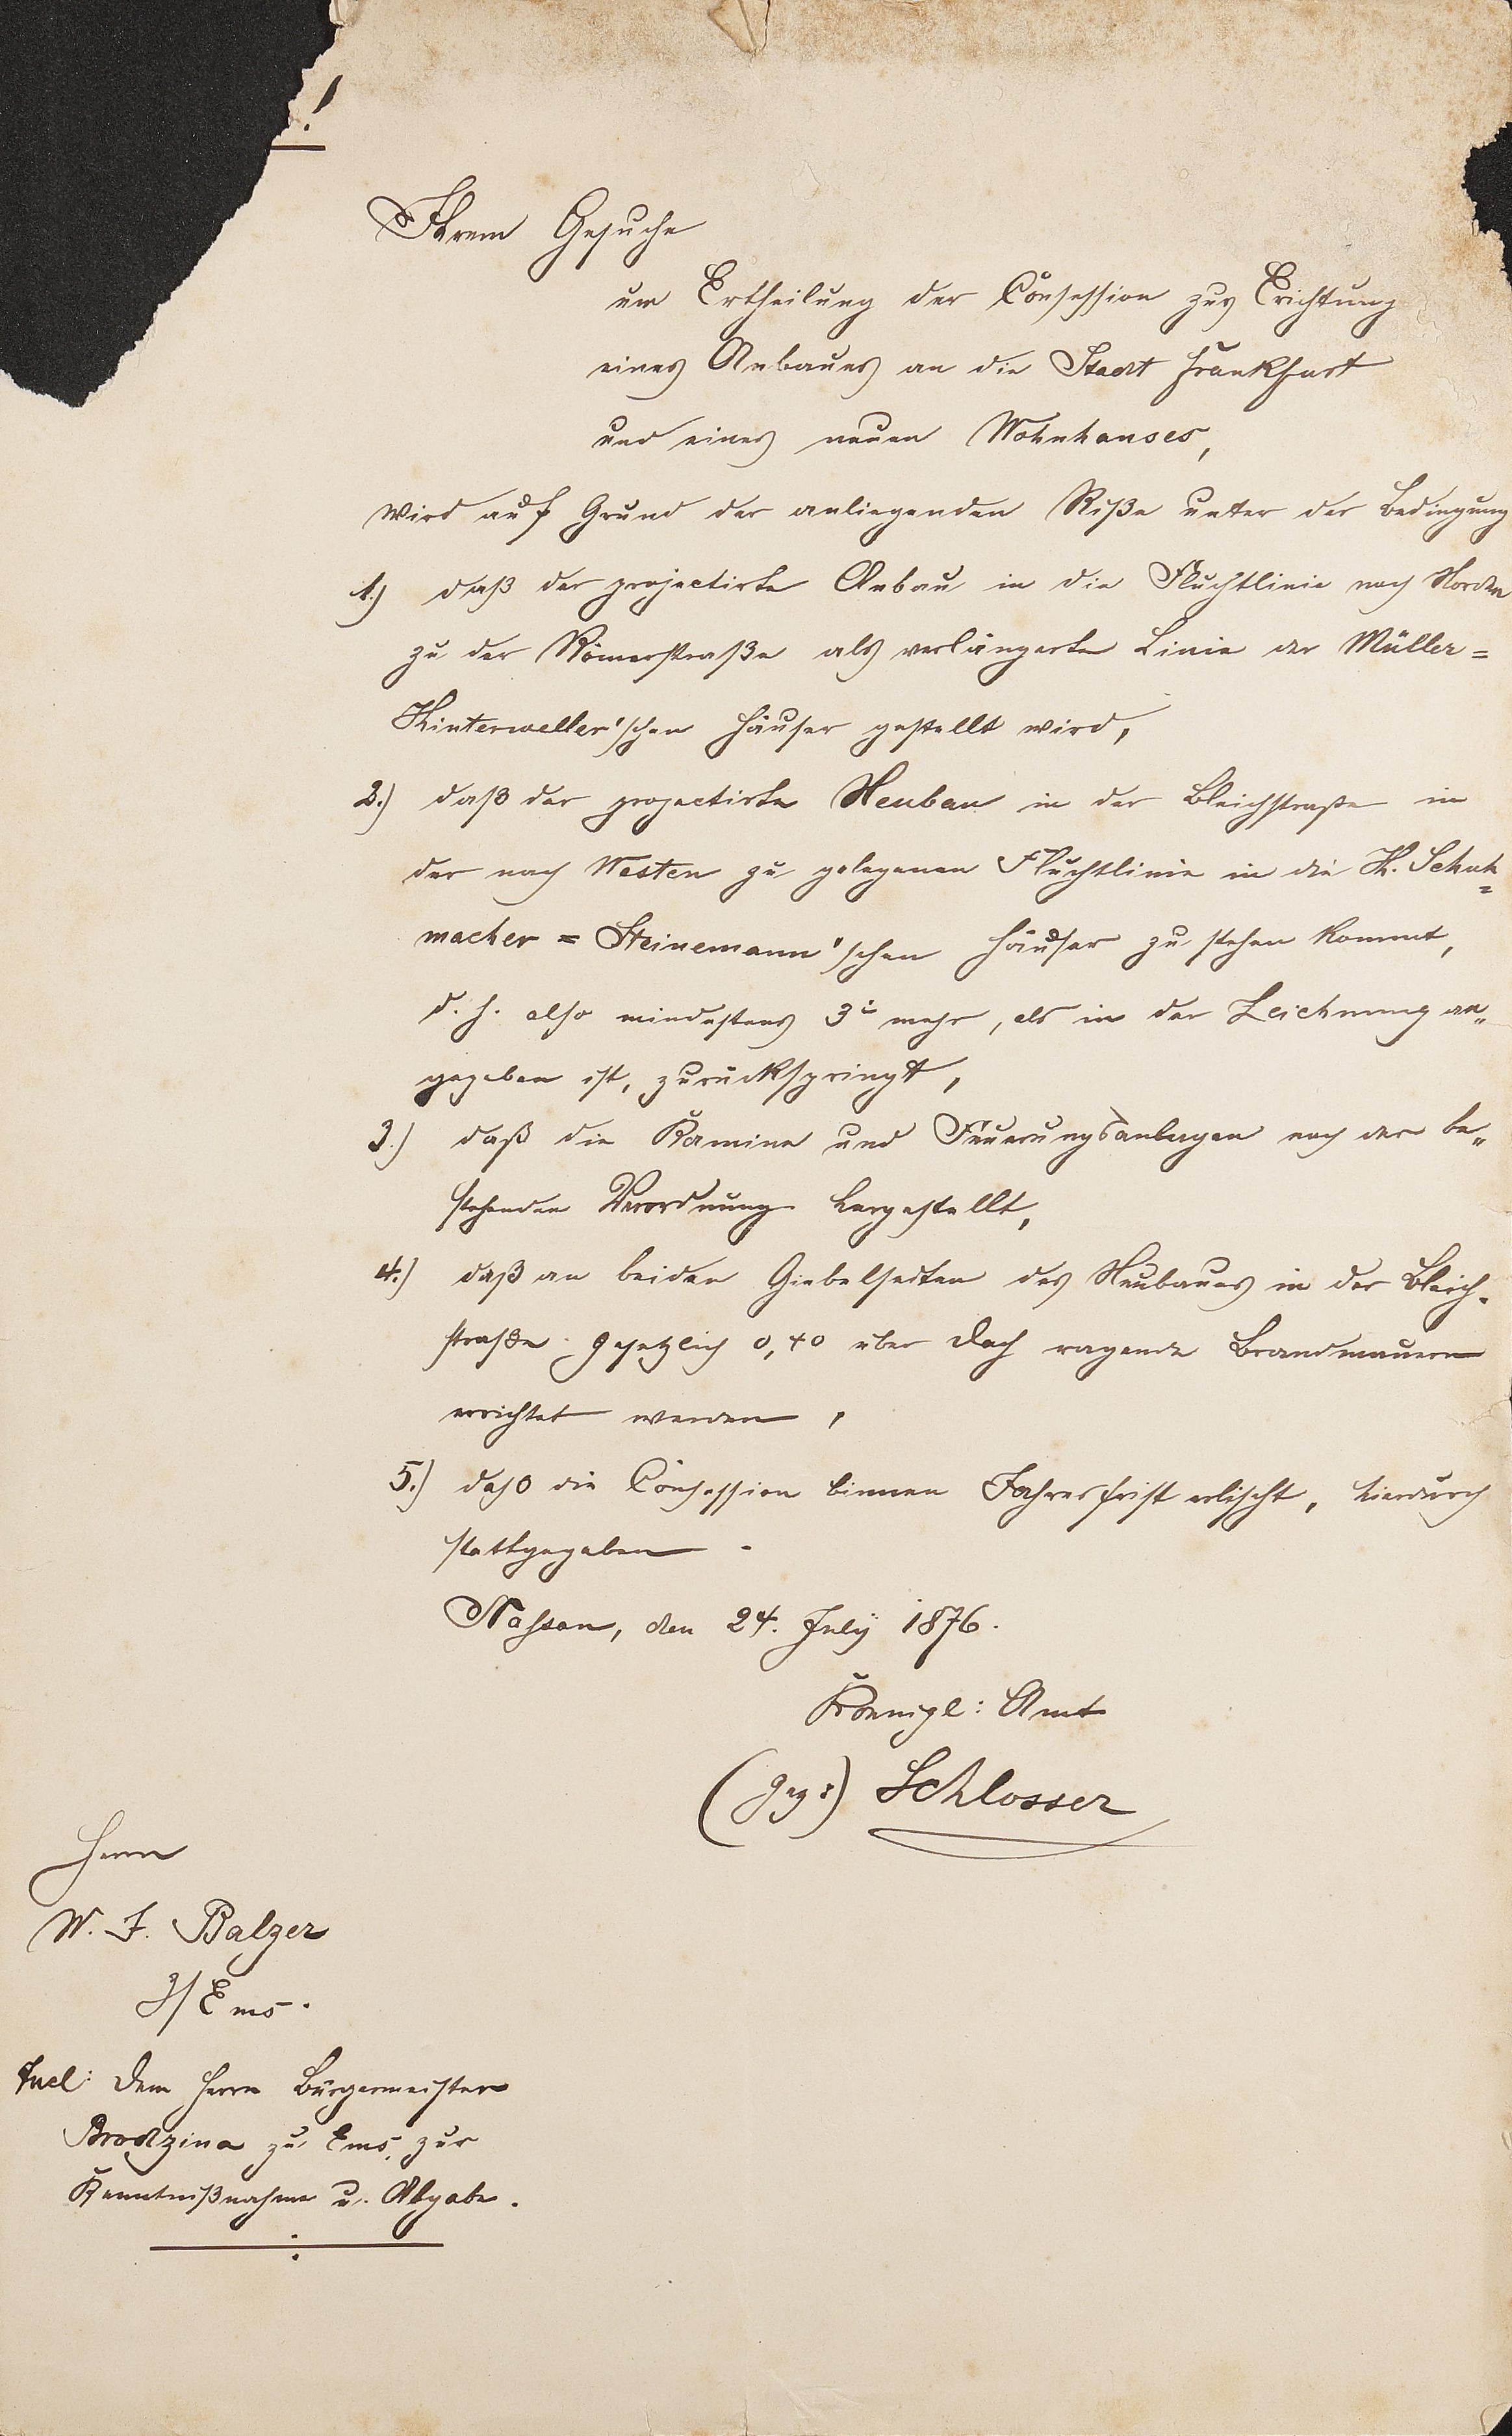 !
Ihrem Gesuche
um Ertheilung der Conzession zur Erichtung
eines Anbaues an die Stadt Frankfurt
und eines neuen Wohnhauses,
wird auf Grund der anliegenden Riße unter der Bedingung
1.) daß der projectirte Anbau in die Fluchtlinie nach Norden
zu der Römerstraße als verlängerte Linie der Müller=
Hinterweller'schen Häuser gestellt wird,
2.) daß der projectirte Neubau in der Bleichstraße in
der nach Westen zu gelegenen Fluchtlinie in die H. Schuh=
macher = Steinemann'schen Häuser zu stehen kommt,
d. h. also mindestens 3' mehr, als in der Zeichnung an„
gegeben ist, zurückspringt,
3.) daß die Kamine und Feuerungsanlagen nach der be„
stehenden Verordnung hergestellt,
4.) daß an beiden Giebelseiten des Neubaues in der Bleich-
straße gesetzlich 0,40 über Dach ragende Brandmauern
errichtet werden,
5.) daß die Conzession binnen Jahresfrist erlischt, hierdurch
stattgegeben.
Nassau, den 24. July 1876.
Koenigl: Amt
(gez:) Schlosser
Herrn
W. F. Balzer
z/ Ems.
Incl: Dem Herrn Bürgermeister
zu Ems, zur
Kenntnißnahme u. Abgabe.